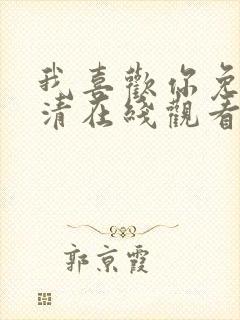 我喜歡你免
清在綫觀看
郭京霞